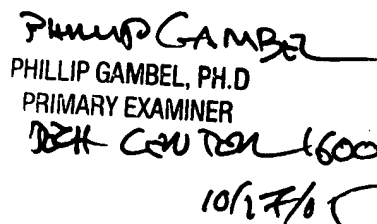 PHILLIP GAMBEL
PHILLIP GAMBEL, PH.D
PRIMARY EXAMINER
TECH CENTER 1600
10/27/05